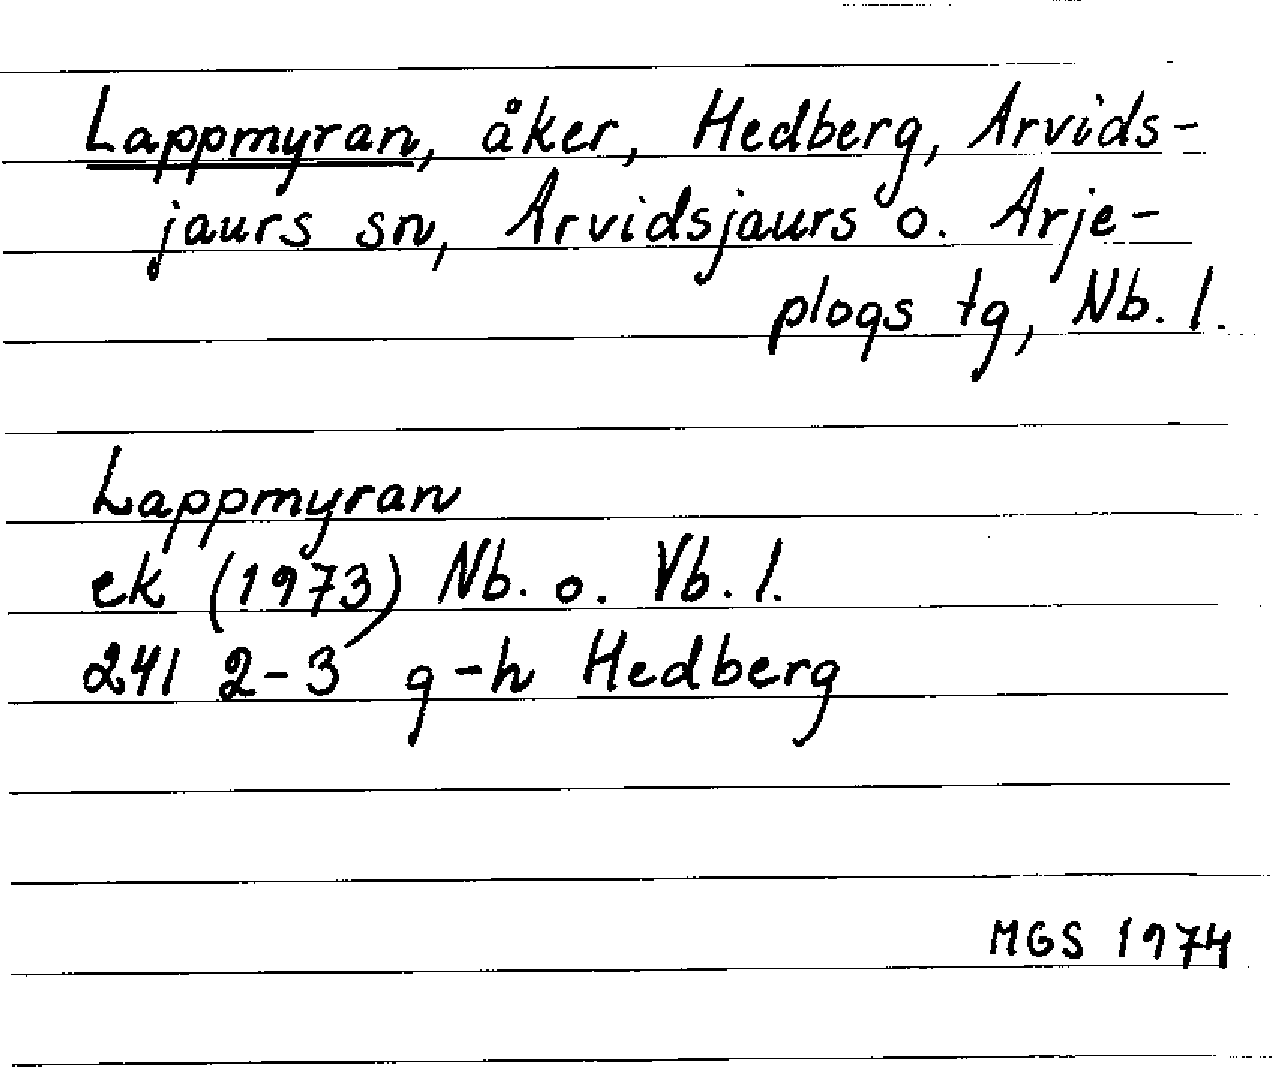 Lappmyran, åker, Hedberg, Arvids-
jaurs sn, Arvidsjaurs o. Arje-
plogs tg, Nb. l.
Lappmyran
ek (1973) Nb. o. Vb. l.
241 2-3 g-h Hedberg
MGS 1974